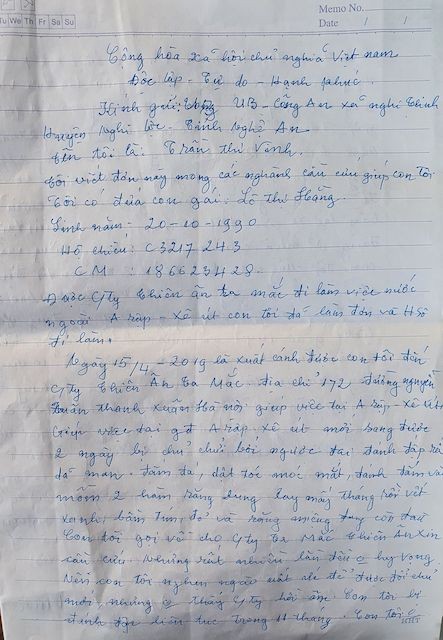 Memo No.
Date / /
Tu We Th Fr Sa Su
Cộng hòa xã hội chủ nghĩa Việt nam
Độc lập - Tự do - Hạnh phúc.
Kính gửi: UB - Công An xã nghi Thinh
Huyện Nghi lộc - Tỉnh Nghệ An
Tên tôi là: Trần thị Vinh.
Tôi viết đơn này mong các nghanh cấu cứu giúp con tôi
Tôi có đứa con gái. Lê thị Hằng.
Sinh năm: 20-10-1990
Hộ chiếu: C3217243
CM : 186623428.
Được C/ty thiên ân ta mắc đi làm việc nước
ngoài A rập - xê út con tôi đã làm đơn và HSơ
đi làm.
Ngày 15/4 - 2019 là xuất cảnh được con tôi đến
C/ty thiên Ân Ta Mắc. địa chỉ 172 đường nguyễn
Tuân thanh xuân Hà nội giúp việc tại A rập - xê út
Giúp việc tại gđ A rập xê út mới sang được
2 ngày bị chủ chửi bới ngược đãi đánh đập rất
dã man. đấm đá, dật tóc móc mắt, đánh đấm vào
mồm 2 hàm răng dung lay mấy tháng rồi vết
xanh, bầm tím, đỏ và răng miệng đang còn đau
Con tôi gọi về cho C/ty Ta Mắc thiên Ân xin
cầu cứu. Nhưng rất nhiều lần đều hy vọng
Nên con tôi nghẹn ngào rất để được đổi chủ
mới, nhưng thấy C/ty hồi âm. Con tôi bị
đánh đập liên tục trong 11 tháng. Con tôi